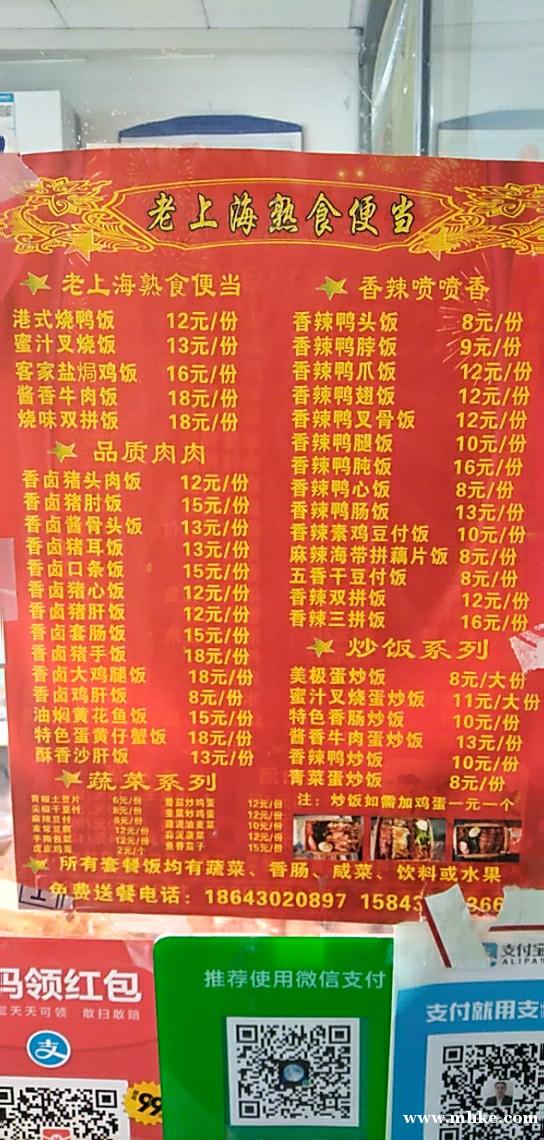 老上海熟食便当
老上海熟食便当
港式烧鸭饭 12元/份
蜜汁叉烧饭 13元/份
客家盐焗鸡饭 16元/份
酱香牛肉饭 18元/份
烧味双拼饭 18元/份
品质肉肉
香卤猪头肉饭 12元/份
香卤猪肘饭 15元/份
香卤酱骨头饭 13元/份
香卤猪耳饭 13元/份
香卤口条饭 15元/份
香卤猪心饭 12元/份
香卤猪肝饭 12元/份
香卤套肠饭 15元/份
香卤猪手饭 18元/份
香卤大鸡腿饭 18元/份
香卤鸡肝饭 8元/份
油焖黄花鱼饭 15元/份
特色蛋黄仔蟹饭 18元/份
酥香沙肝饭 13元/份
蔬菜系列
青椒土豆片 6元/份
麻辣豆付
番茄炒鸡蛋 12元/份
鱼香茄子 15元/份
香辣喷喷香
香辣鸭头饭 8元/份
香辣鸭脖饭 9元/份
香辣鸭爪饭 12元/份
香辣鸭翅饭 12元/份
香辣鸭叉骨饭 12元/份
香辣鸭腿饭 10元/份
香辣鸭肫饭 16元/份
香辣鸭心饭 8元/份
香辣鸭肠饭 13元/份
香辣素鸡豆付饭 10元/份
麻辣海带拼藕片饭 8元/份
五香干豆付饭 8元/份
香辣双拼饭 12元/份
香辣三拼饭 16元/份
炒饭系列
美极蛋炒饭 8元/大份
蜜汁叉烧蛋炒饭 11元/大份
特色香肠炒饭 10元/份
酱香牛肉蛋炒饭 13元/份
香辣鸭炒饭 10元/份
青菜蛋炒饭 8元/份
注：炒饭如需加鸡蛋一元一个
所有套餐饭均有蔬菜、香肠、咸菜、饮料或水果
免费送餐电话：18643020897 15843 366
码领红包
天天可领 敢扫敢赔
支
99
推荐使用微信支付
支付宝
ALIPA
支付就用支
www.mhke.com